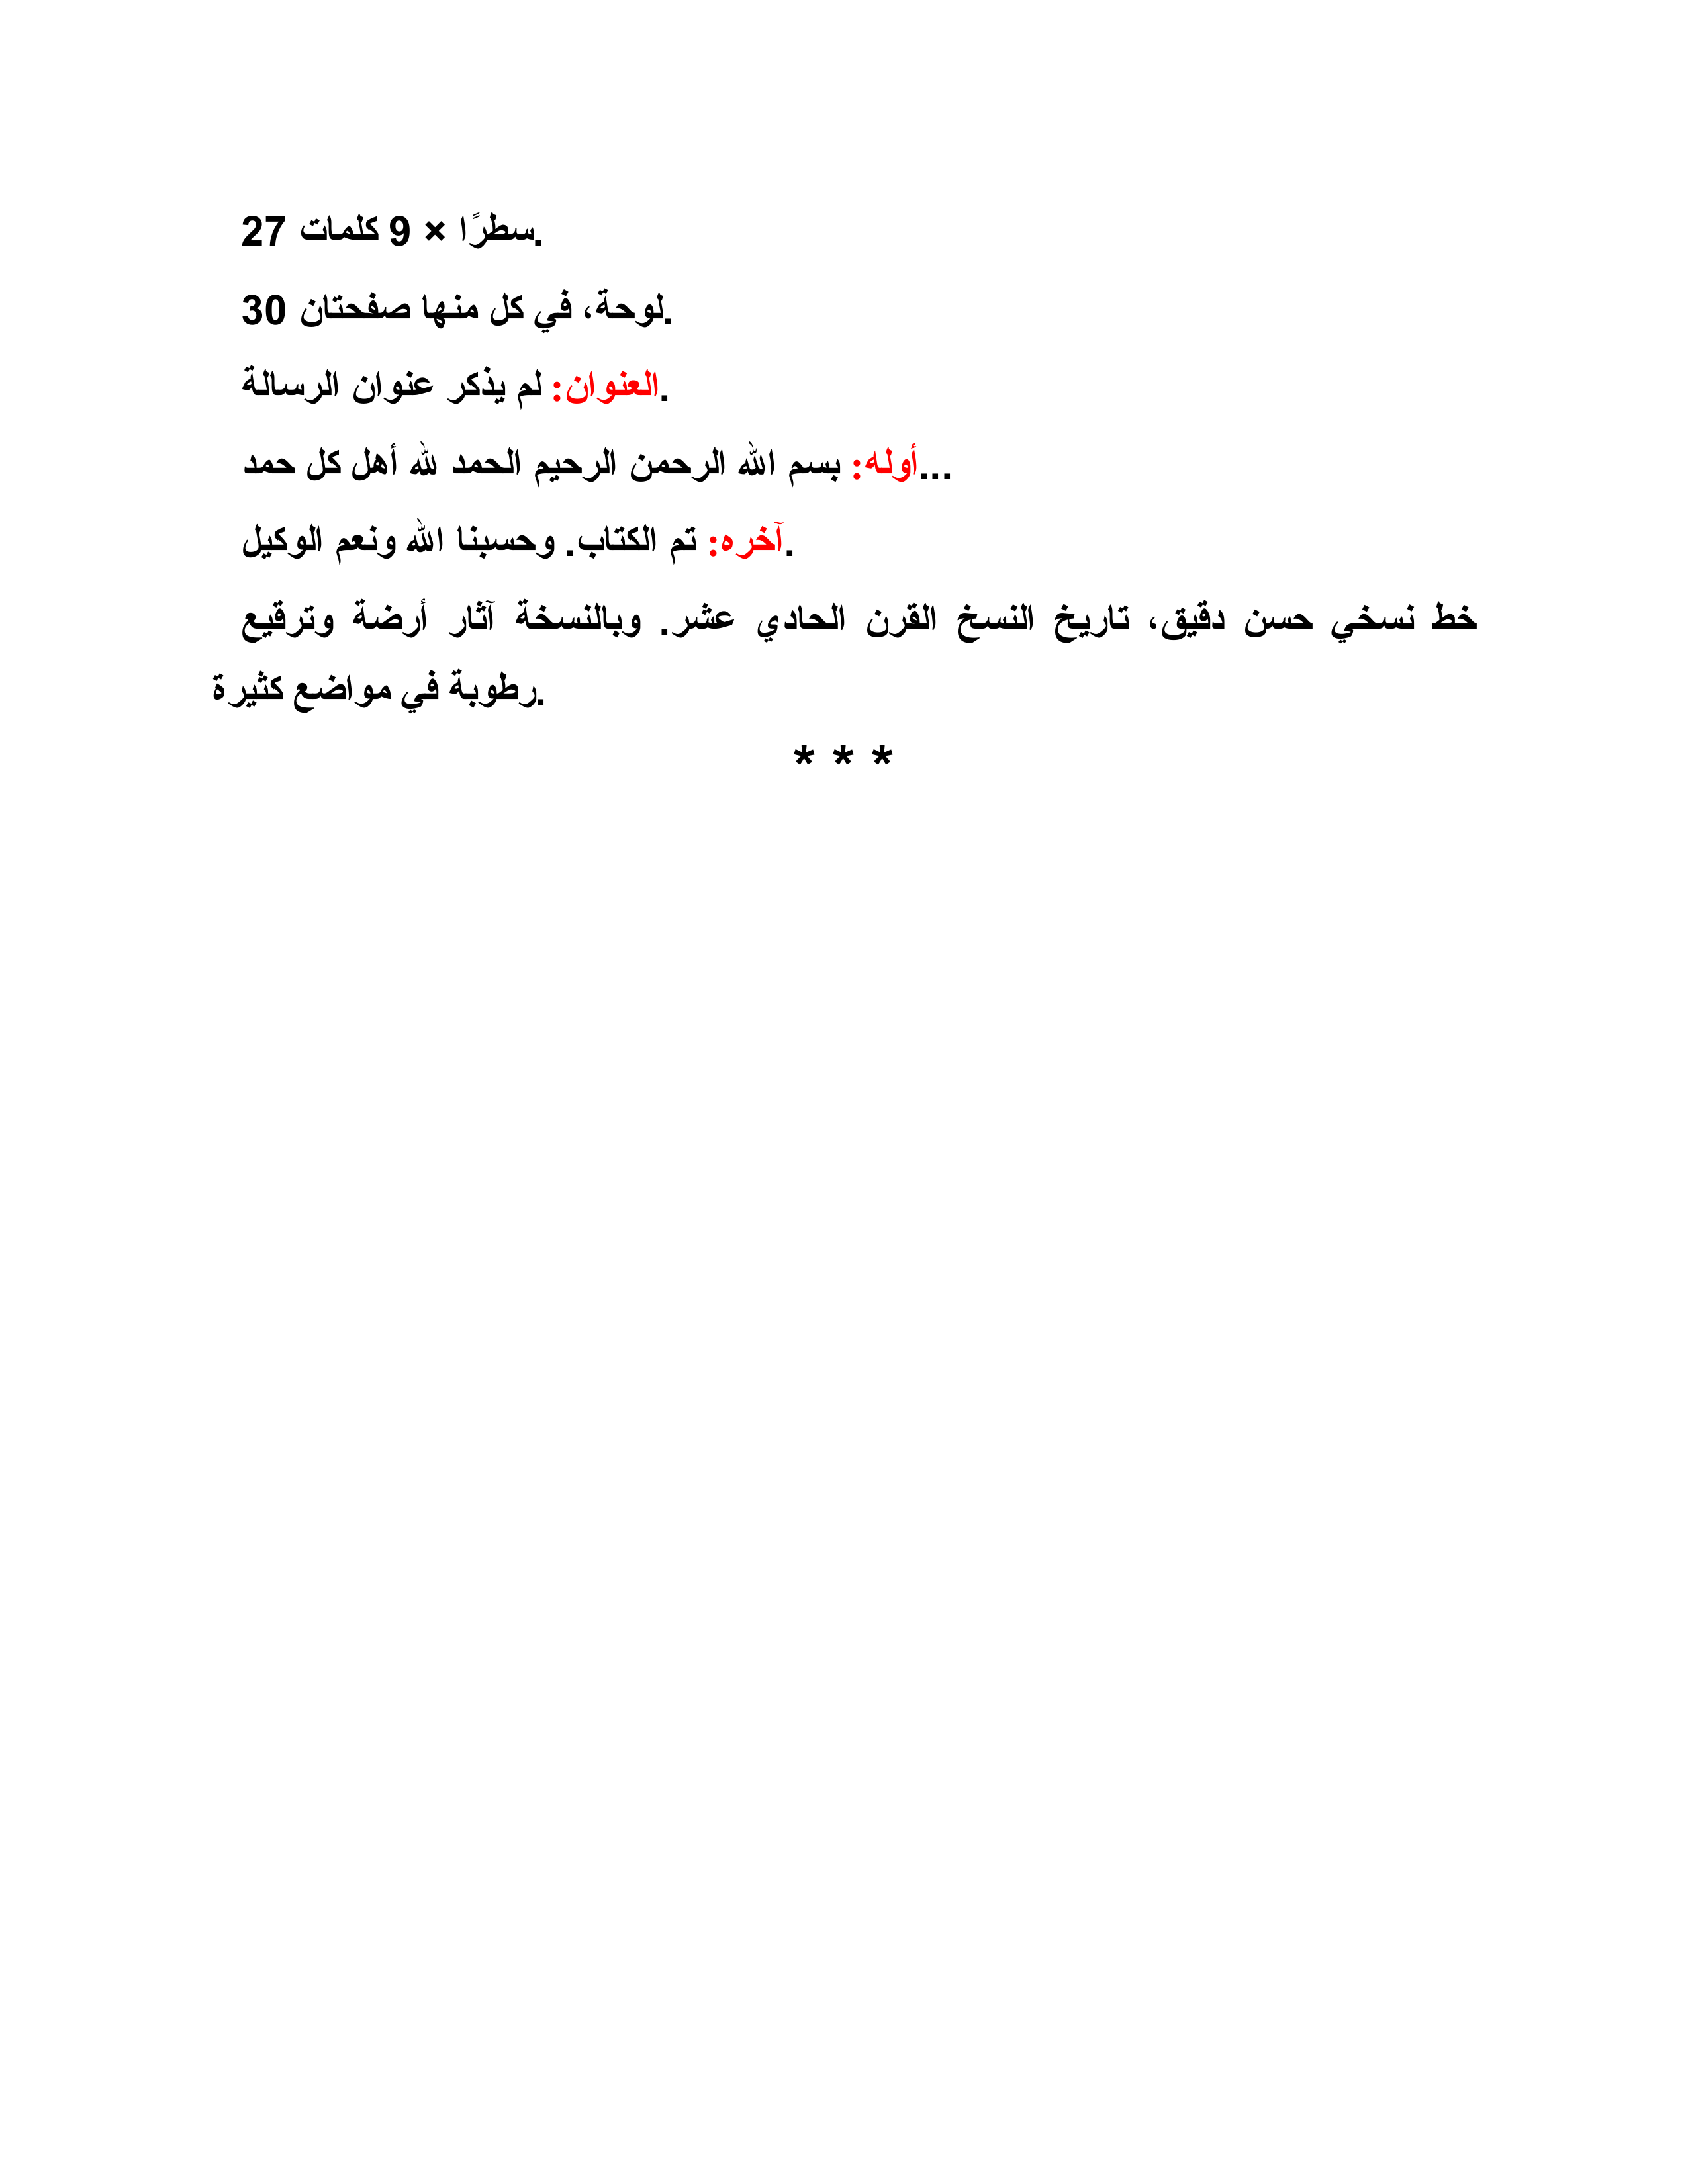 27 سطرًا × 9 كلمات.
30 لوحة، في كل منها صفحتان.
العنوان: لم يذكر عنوان الرسالة.
أوله: بسم الله الرحمن الرحيم الحمد لله أهل كل حمد...
آخره: تم الكتاب. وحسبنا الله ونعم الوكيل.
خط نسخي حسن دقيق، تاريخ النسخ القرن الحادي عشر. وبالنسخة آثار أرضة وترقيع
رطوبة في مواضع كثيرة.
* * *